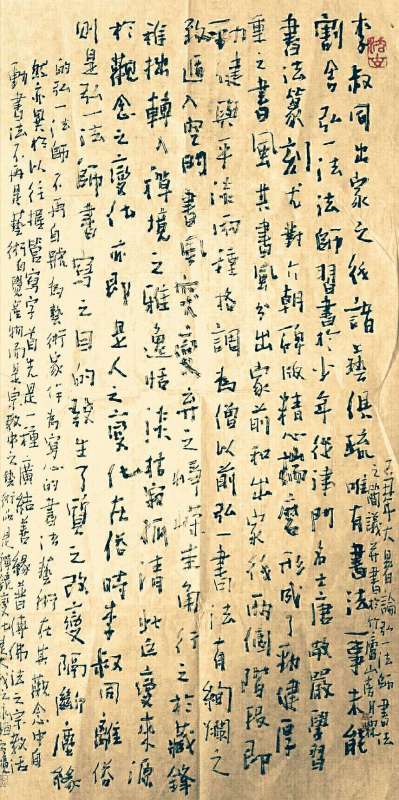 李叔同出家之後諸藝俱疏唯有書法一事未能
割舍弘一法師習書於少年從津門名士唐敬嚴學習
書法篆刻尤對六朝碑版精心臨磨形成了勁健厚
重之書風其書風分出家前和出家後兩個階段即
勁健與平淡兩種格調為僧以前弘一書法有絢爛之
致遁入空門書風突變棄之崢嶸圭角行之於藏鋒
稚拙轉入禪境之雅逸恬淡枯寂孤清此巨變來源
於觀念之變化亦即是人之變化在俗時李叔同離俗
則是弘一法師書寫之目的發生了質之改變隔斷塵緣
的弘一法師不再自號為藝術家作為寫心的書法藝術在其觀念中自
然亦異於以往握管寫字首先是一種廣結善緣普傳佛法之宗教活
動書法不再是藝術自覺產物而是宗教中之藝術
大暑日論弘一法師書法
之簡議並書於竹廬山房